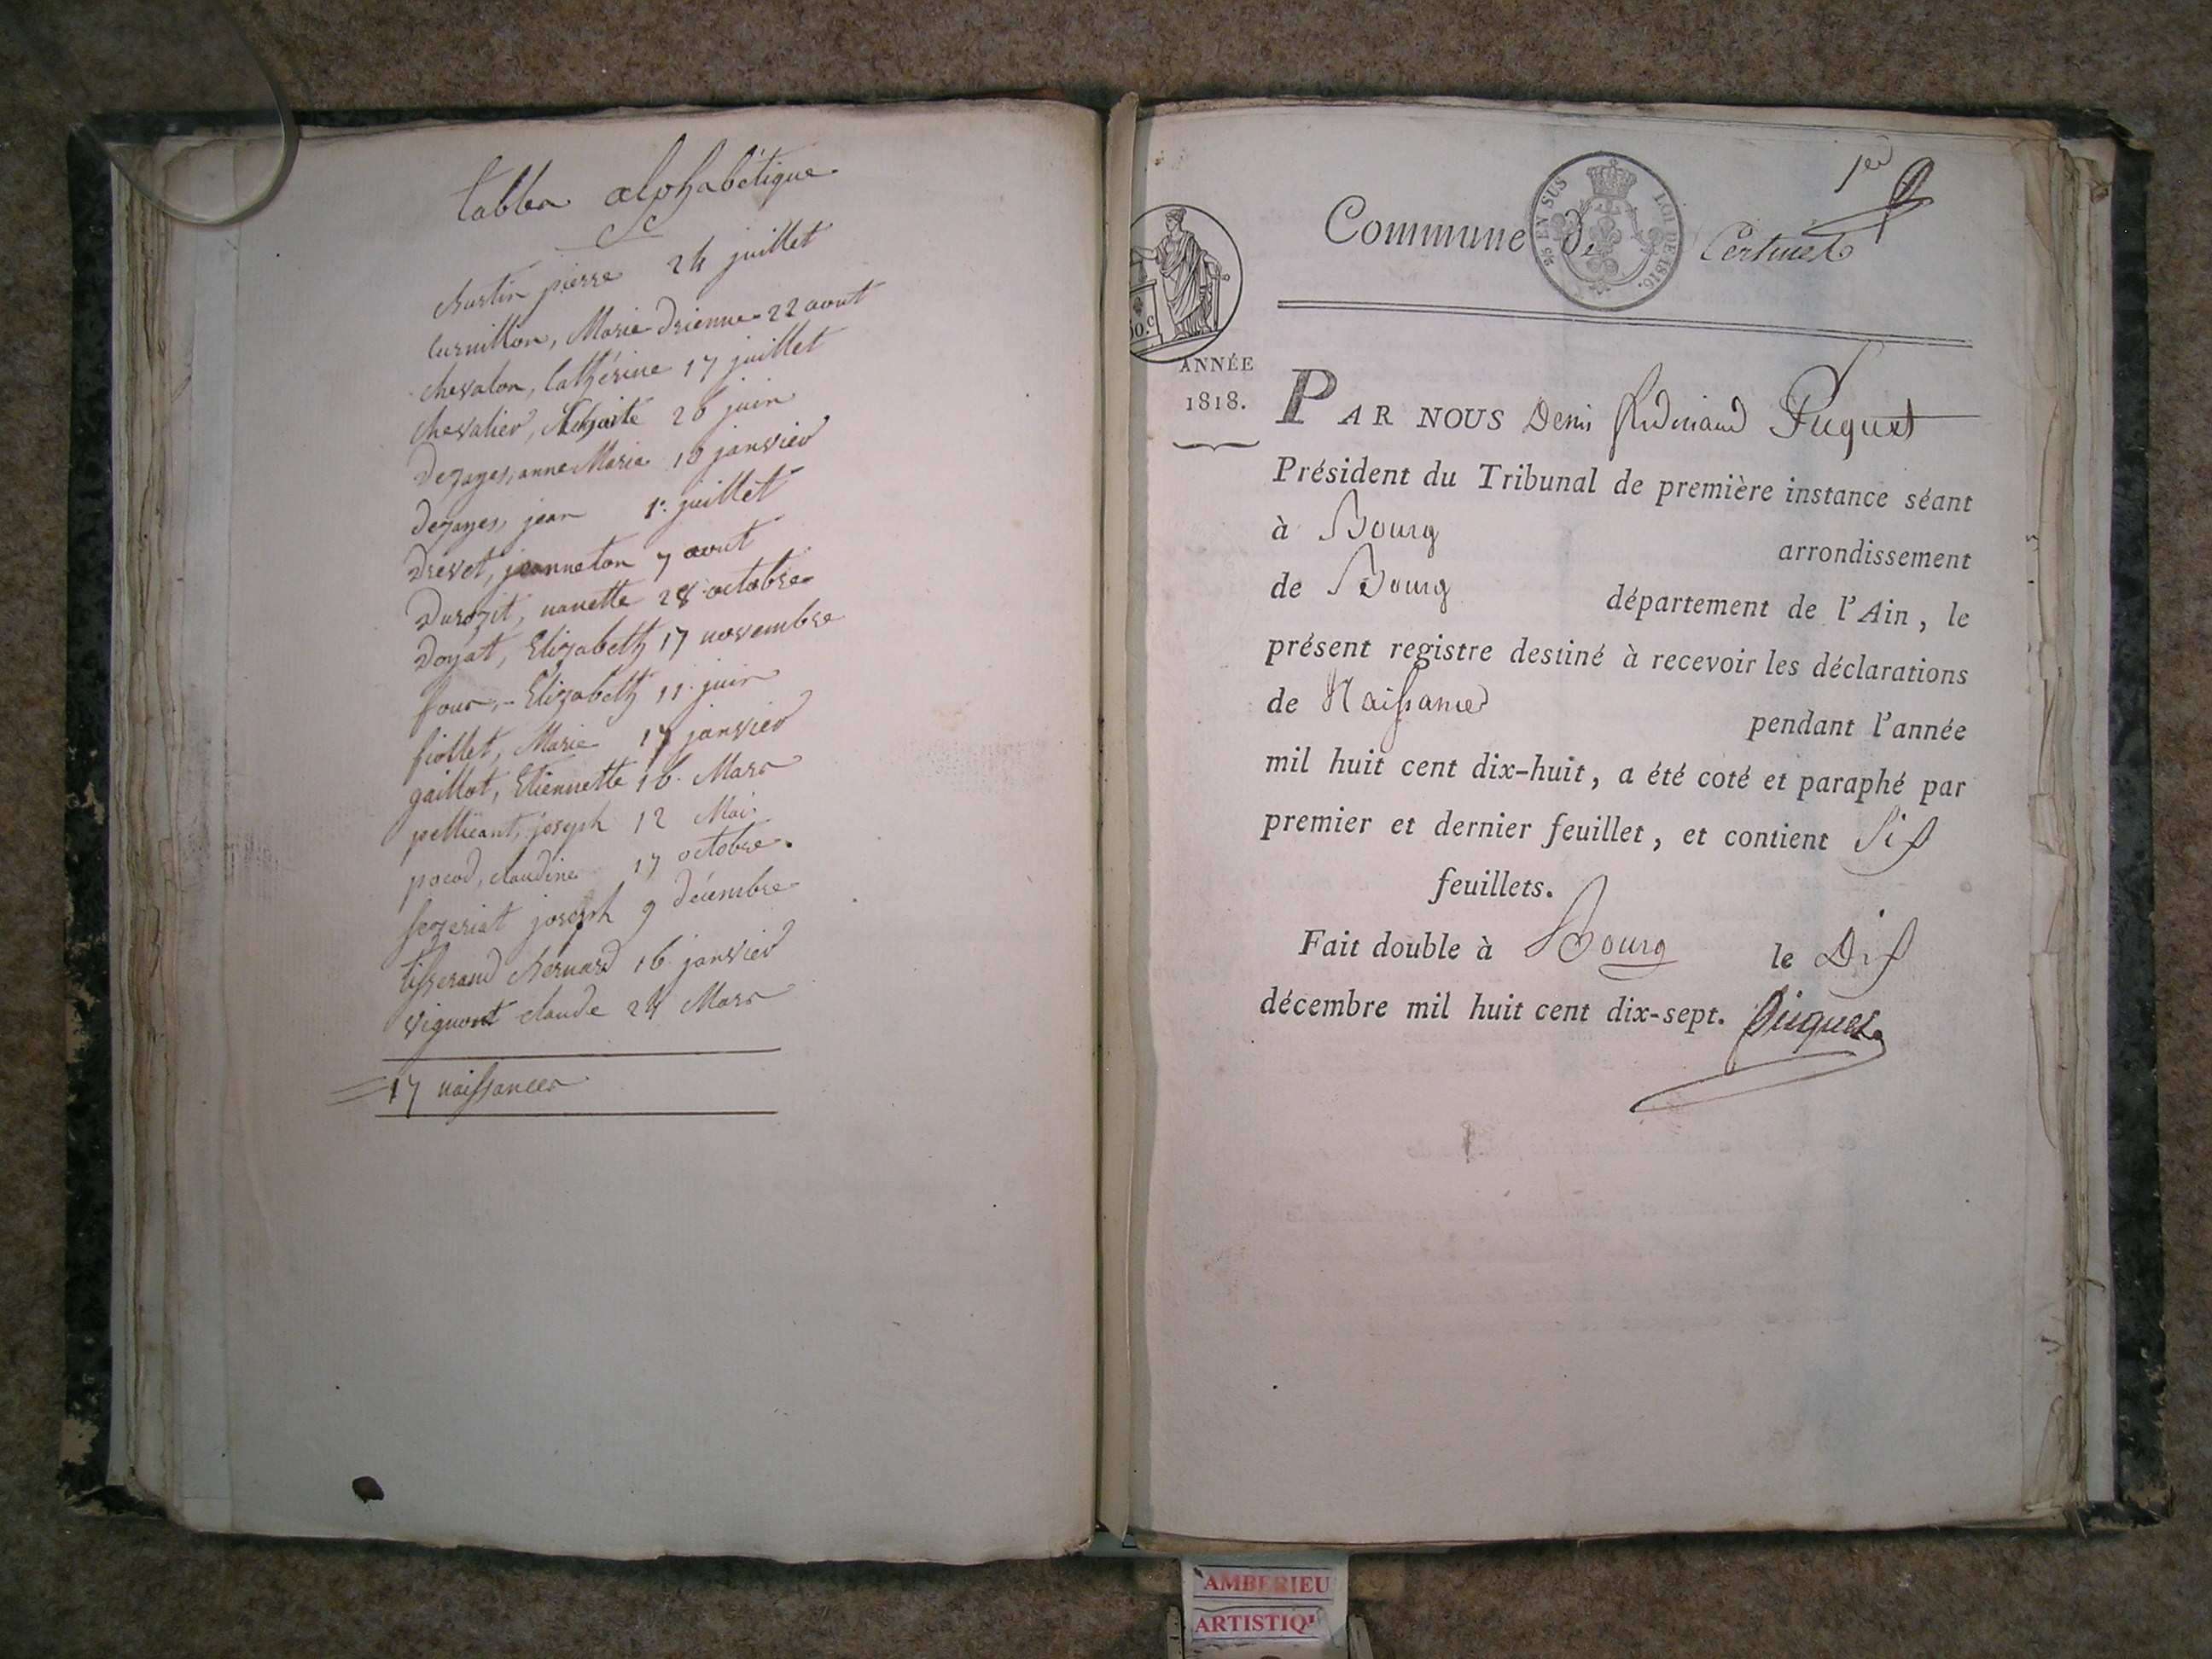 tables alphabétique
Burtin pierre 24 juillet
Curnillon, Marie Drienne 22 aout
chevalon, Cathérine 17 juillet
chevalier, 26 juin
Dezayes, anne Marie 10 janvier
dezayes, jean 1er juillet
Drevet, jeanneton 7 aout
Durozit, nanette 28 octobre
Doyat, Elizabeth 17 novembre
four, Elizabeth 11 juin
fiollet, Marie 17 janvier
gaillot, Etiennette 16 Mars
pellicant, joseph 12 Mai
pocod, claudine 17 octobre
sezeriat joseph 9 décembre
tisserand Bernard 16 janvier
vignont claude 24 Mars
17 naissances
1er
Commune de Certines
5/6 EN SUS LOI DE 1816.
50.c
ANNÉE
1818.
PAR NOUS Denis ferdinand Puguet
Président du Tribunal de première instance séant
à Bourg arrondissement
de Bourg département de l'Ain, le
présent registre destiné à recevoir les déclarations
de Naissance pendant l'année
mil huit cent dix-huit, a été coté et paraphé par
premier et dernier feuillet, et contient Six
feuillets.
Fait double à Bourg le Dix
décembre mil huit cent dix-sept. Puguet
AMBERIEU
ARTISTIQ